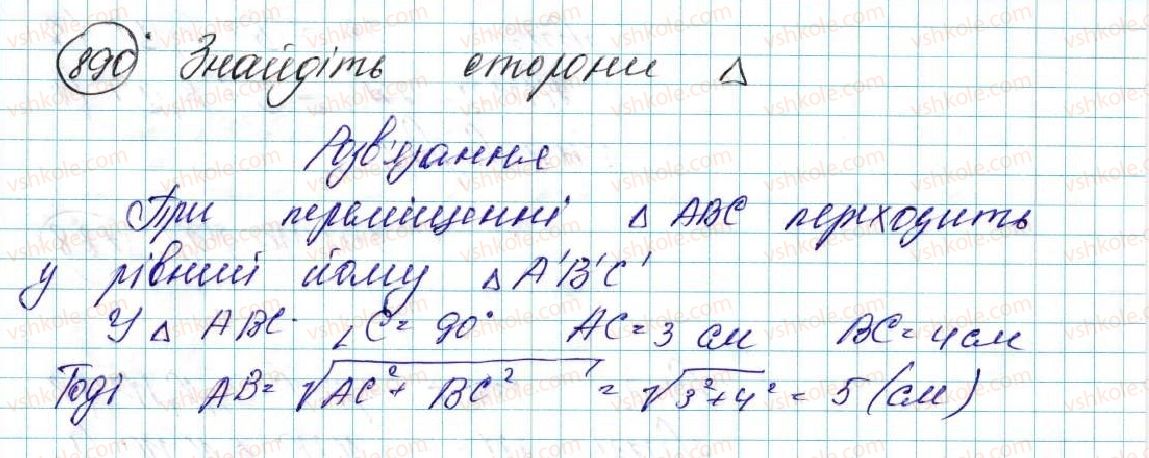 890. Знайдіть сторони Δ
Розв'язання
При переміщенні Δ ABC переходить
у рівний йому Δ A'B'C'
У Δ ABC ∠C = 90° AC = 3 см BC = 4 см
Тоді AB = √(AC² + BC²) = √(3² + 4²) = 5 (см)